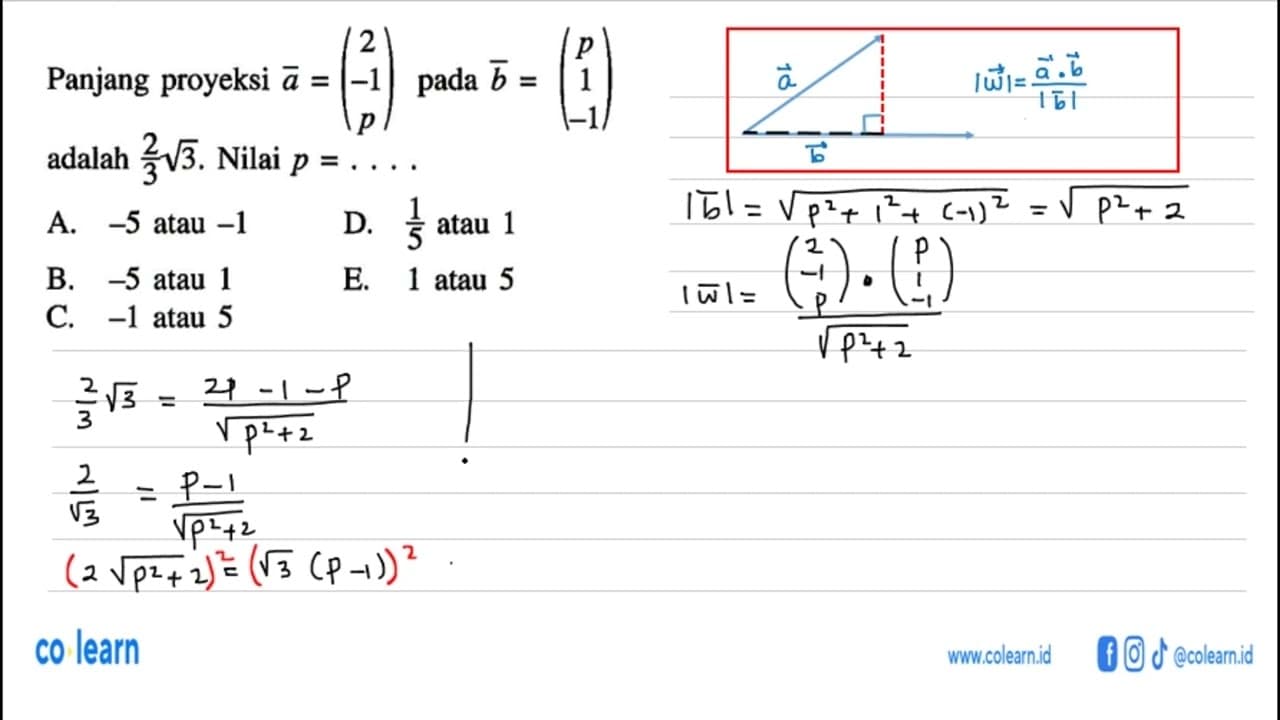 Panjang proyeksi a̅ = (2 −1 p) pada b̅ = (p 1 −1)
adalah 2/3√3. Nilai p = . . . .
A. −5 atau −1
B. −5 atau 1
C. −1 atau 5
D. 1/5 atau 1
E. 1 atau 5
a⃗
b⃗
|w⃗| = a⃗ . b⃗ / |b̅|
|b̅| = √(p² + 1² + (-1)²) = √(p² + 2)
|w̅| = (2 -1 p) • (p 1 -1) / √(p² + 2)
2/3 √3 = 2p - 1 - p / √(p² + 2)
2/√3 = p - 1 / √(p² + 2)
(2 √(p² + 2))² = (√3 (p - 1))²
co learn
www.colearn.id
@colearn.id